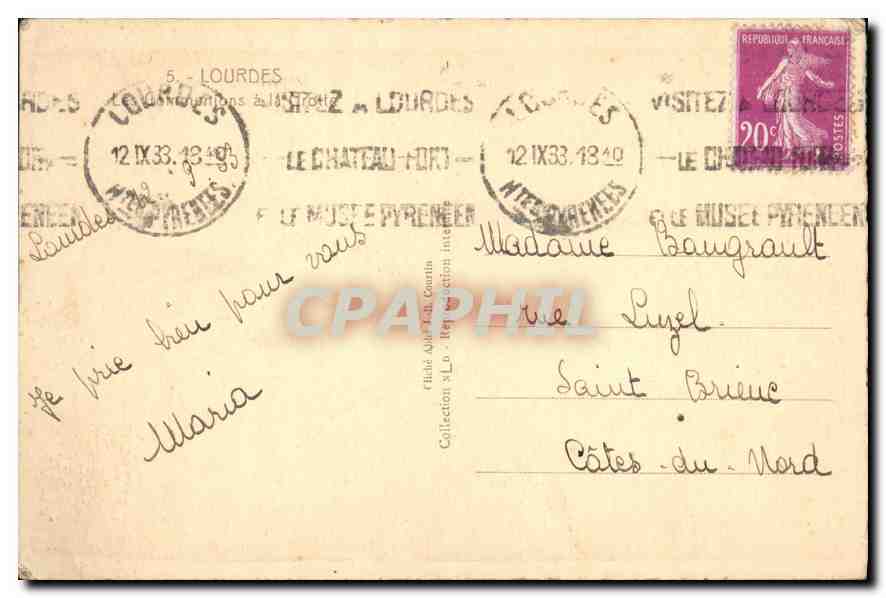 5. - LOURDES
Les Communions à la Grotte
LOURDES
12 IX 33. 18 40
HTES PYRENEES
VISITEZ A LOURDES
LE CHATEAU-FORT
ET LE MUSEE PYRENEEN
LOURDES
12 IX 33. 18 40
HTES PYRENEES
VISITEZ A LOURDES
LE CHATEAU-FORT
ET LE MUSEE PYRENEEN
REPUBLIQUE FRANÇAISE
20c
POSTES
Lourdes
Je prie bien pour vous
Maria
Cliché Abbé Courtin
Collection NLD - Reproduction interdite
Madame Baugrault
rue Luzel
Saint Brieuc
Côtes-du-Nord
CPAPHIL